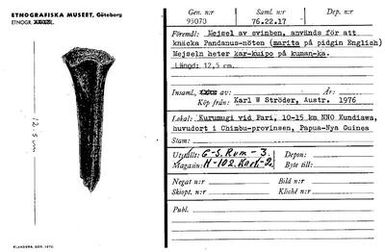 ETNOGRAFISKA MUSEET, Göteborg
ETNOGR.
12,5 cm
ELANDERS, GBG 1970
Gen. n:r
95070
Saml. n:r
76.22.17
Dep. n:r
Föremål: Mejsel av svinben, används för att
knäcka Pandanus-nöten (marita på pidgin English)
Mejseln heter kar-kuipo på kuman-ka.
Längd: 12,5 cm.
Insaml. av
Köp från: Karl W Ströder, Austr. 1976
Lokal: Kurumugi vid Pari, 10-15 km NNO Kundiawa,
huvudort i Chimbu-provinsen, Papua-Nya Guinea
Stam:
Utställt: G-S. Rum-3.
Magasin: H-102. Kart-2.
Depon:
Byte till:
Negat n:r
Skiopt. n:r
Bild n:r
Kliché n:r
Publ.